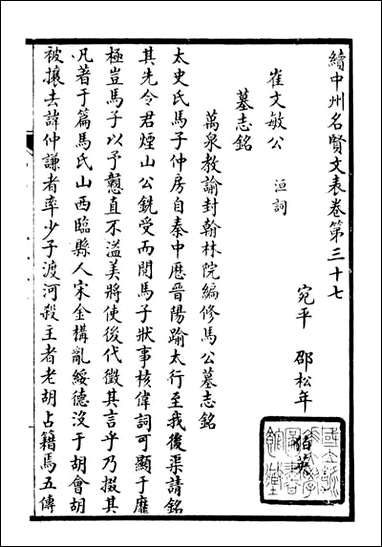 續中州名賢文表卷第三十七
宛平 邵松年
崔文敏公 洹詞
墓志銘
萬泉教諭封翰林院編修馬公墓志銘
太史氏馬子仲房自秦中歷晉陽踰太行至我後渠請銘
其先令君煙山公銑受而閱馬子狀事核偉詞可顯于靡
極豈馬子以予戇直不溢美將使後代徵其言乎乃掇其
凡著于篇馬氏山西臨縣人宋金構亂綏德沒于胡會胡
被攘去諱仲謙者率少子渡河殺主者老胡占籍馬五傳